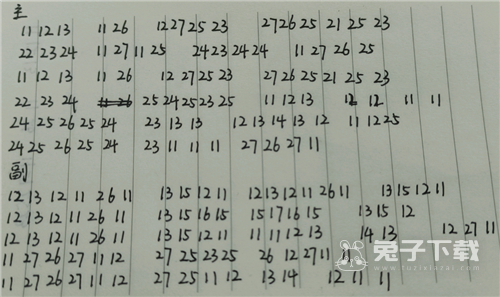 主
11 12 13 11 26 12 27 25 23 27 26 25 21 25 23
22 23 24 11 27 11 25 24 23 24 24 11 27 26 25
11 12 13 11 26 12 27 25 23 27 26 25 21 25 23
22 23 24 25 24 25 23 25 11 12 13 12 12 11 11
24 25 26 25 24 23 13 13 12 13 14 13 12 11 12 25
24 25 26 25 24 23 11 11 11 27 26 27 11
副
12 13 12 11 26 11 13 15 12 11 12 13 12 11 26 11 13 15 12 11
12 13 12 11 26 11 13 15 16 15 15 17 16 15 13 15 12
12 13 12 11 26 11 13 15 12 11 11 11 12 13 14 13 12 27 11
11 27 26 27 11 12 27 25 23 25 26 12 27 11 11
11 27 26 27 11 12 27 25 11 12 13 14 12 11 11
兔子下载
www.tuzixiazai.com